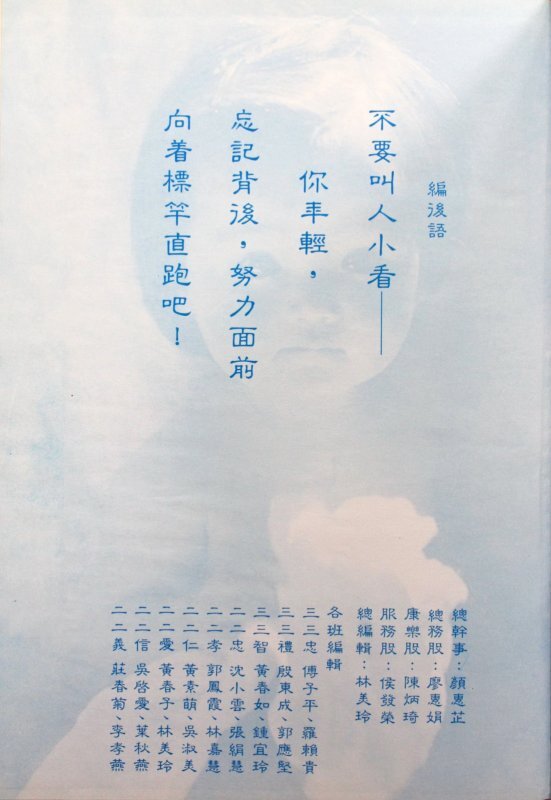 編後語
不要叫人小看——
你年輕，
忘記背後，努力面前
向着標竿直跑吧！
總幹事：顏惠芷
總務股：廖惠娟
康樂股：陳炳琦
服務股：侯發榮
總編輯：林美玲
各班編輯
三三忠 傅子平、羅賴貴
三三禮 殷東成、郭應堅
三三智 黃春如、鍾宜玲
二二忠 沈小雲、張絹慧
二二孝 郭鳳霞、林嘉慧
二二仁 黃素萌、吳淑美
二二愛 黃春子、林美玲
二二信 吳啓愛、葉秋燕
二二義 莊春菊、李孝燕